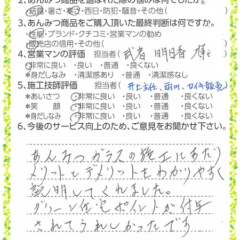 2.あんみつ商品を選ばれた際の希望は何でしたか?
結露・暑さ・寒さ・西日・防犯・騒音・その他(
3.あんみつ商品をご購入頂いた最終判断は何ですか。
性能・ブランド・クチコミ・営業マンの勧め
販売店の信用・その他(
4.営業マンの評価 担当者(
・非常に良い ・良い ・普通 ・良くない
*身だしなみ ・清潔感あり ・普通 ・清潔感なし
5.施工技師評価 担当者(
*あいさつ ・非常に良い ・良い ・普通 ・良くない
*笑 顔 ・非常に良い ・良い ・普通 ・良くない
*身だしなみ ・非常に良い ・良い ・普通 ・良くない
6.今後のサービス向上のため、ご意見をお聞かせ下さい。
あんみつガラスの施工にあたり
メリットとデメリットをわかりやすく
説明してくれました。
グリーン住宅ポイントが付与
されてうれしかったです